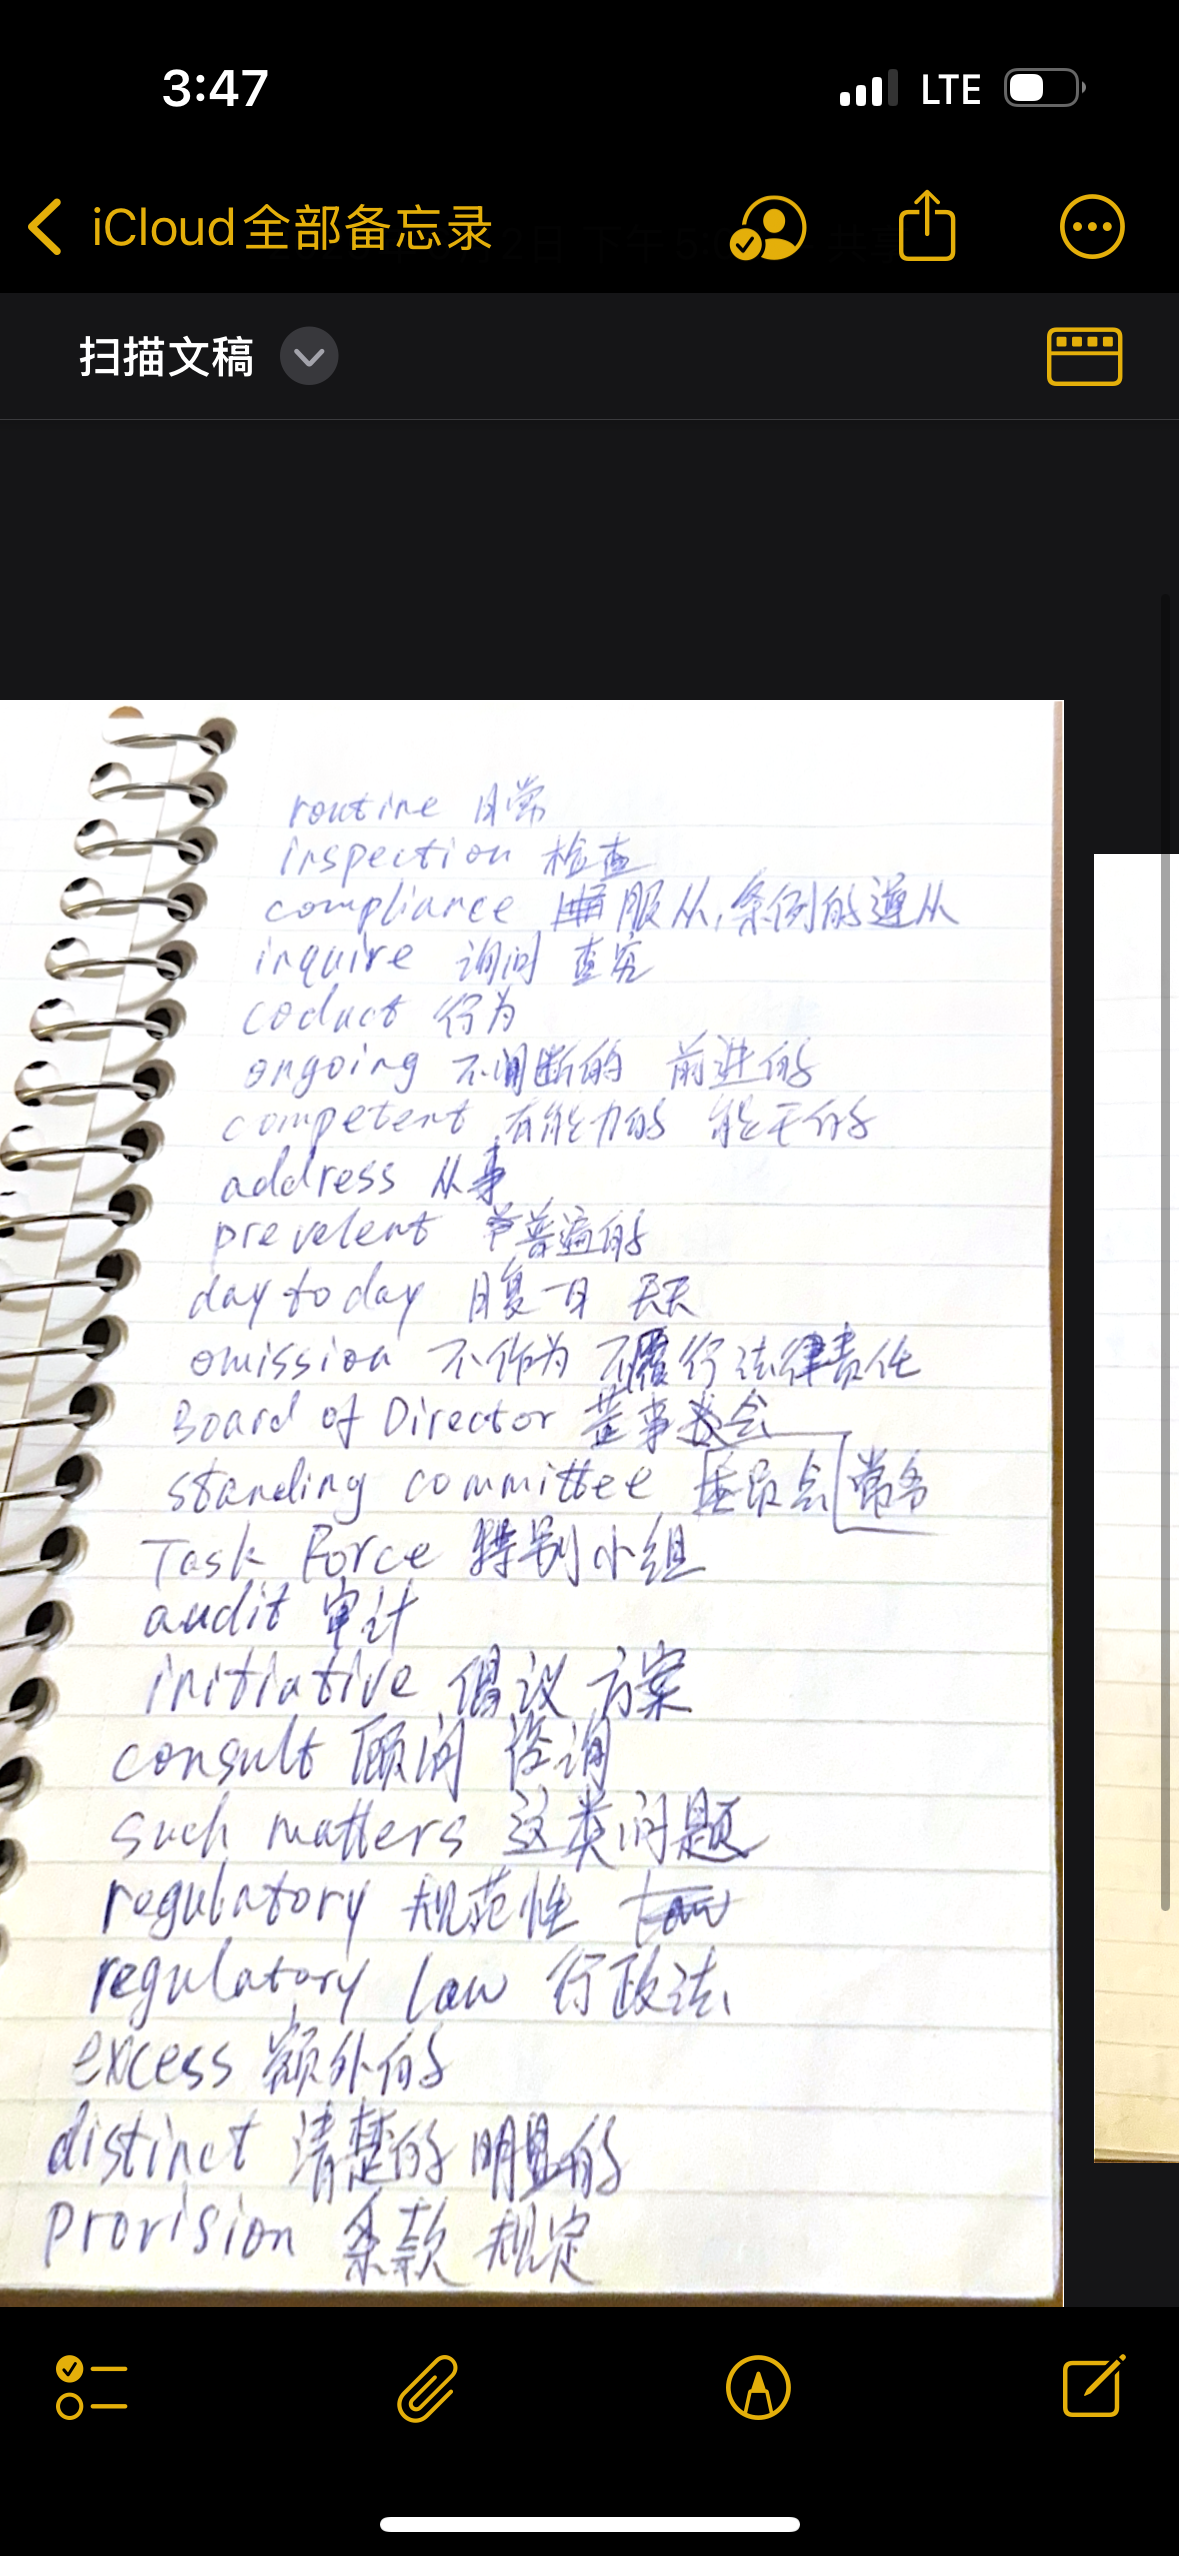 3:47 LTE
iCloud全部备忘录
扫描文稿
routine 日常
inspection 检查
compliance 服从,条例的遵从
inquire 询问 查究
coduct 行为
ongoing 不间断的 前进的
competent 有能力的 能干的
address 从事
prevelent 普遍的
day to day 日复一日 天天
omission 不作为 不履行法律责任
Board of Director 董事委会
standing committee 委员会 常务
Task Force 特别小组
audit 审计
initiative 倡议 方案
consult 顾问 咨询
such matters 这类问题
regulatory 规范性
regulatory law 行政法
excess 额外的
distinct 清楚的 明显的
provision 条款 规定